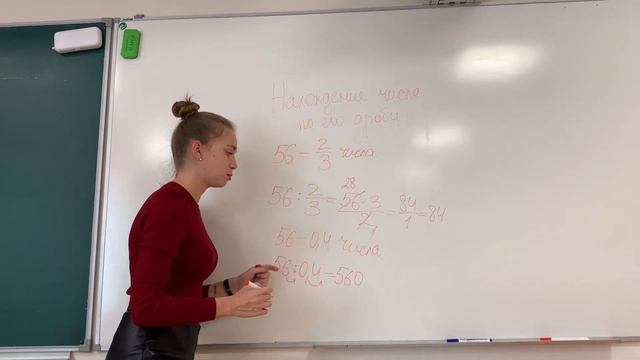 Нахождение числа
по его дроби
56 − 2/3 числа.
56 : 2/3 = 56·3/2 = 84/1 = 84.
28
1
56 − 0,4 числа
56 : 0,4 = 560